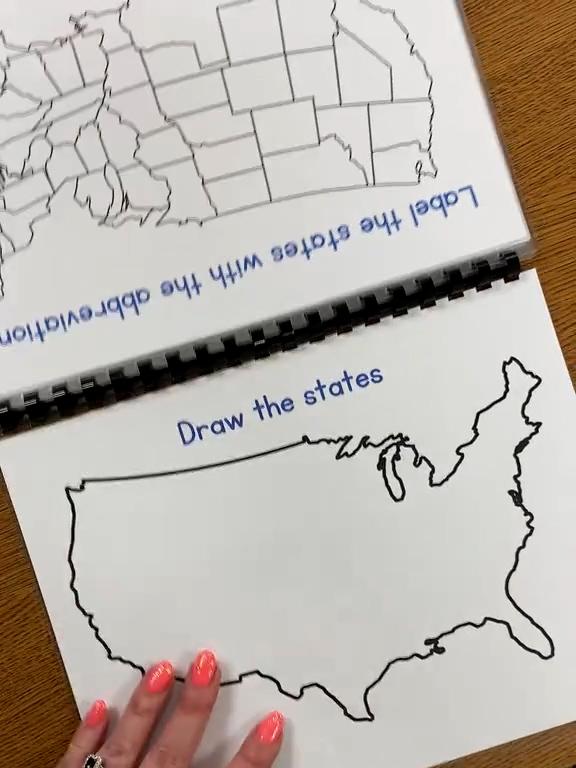 Label the states with the abbreviation
Draw the states